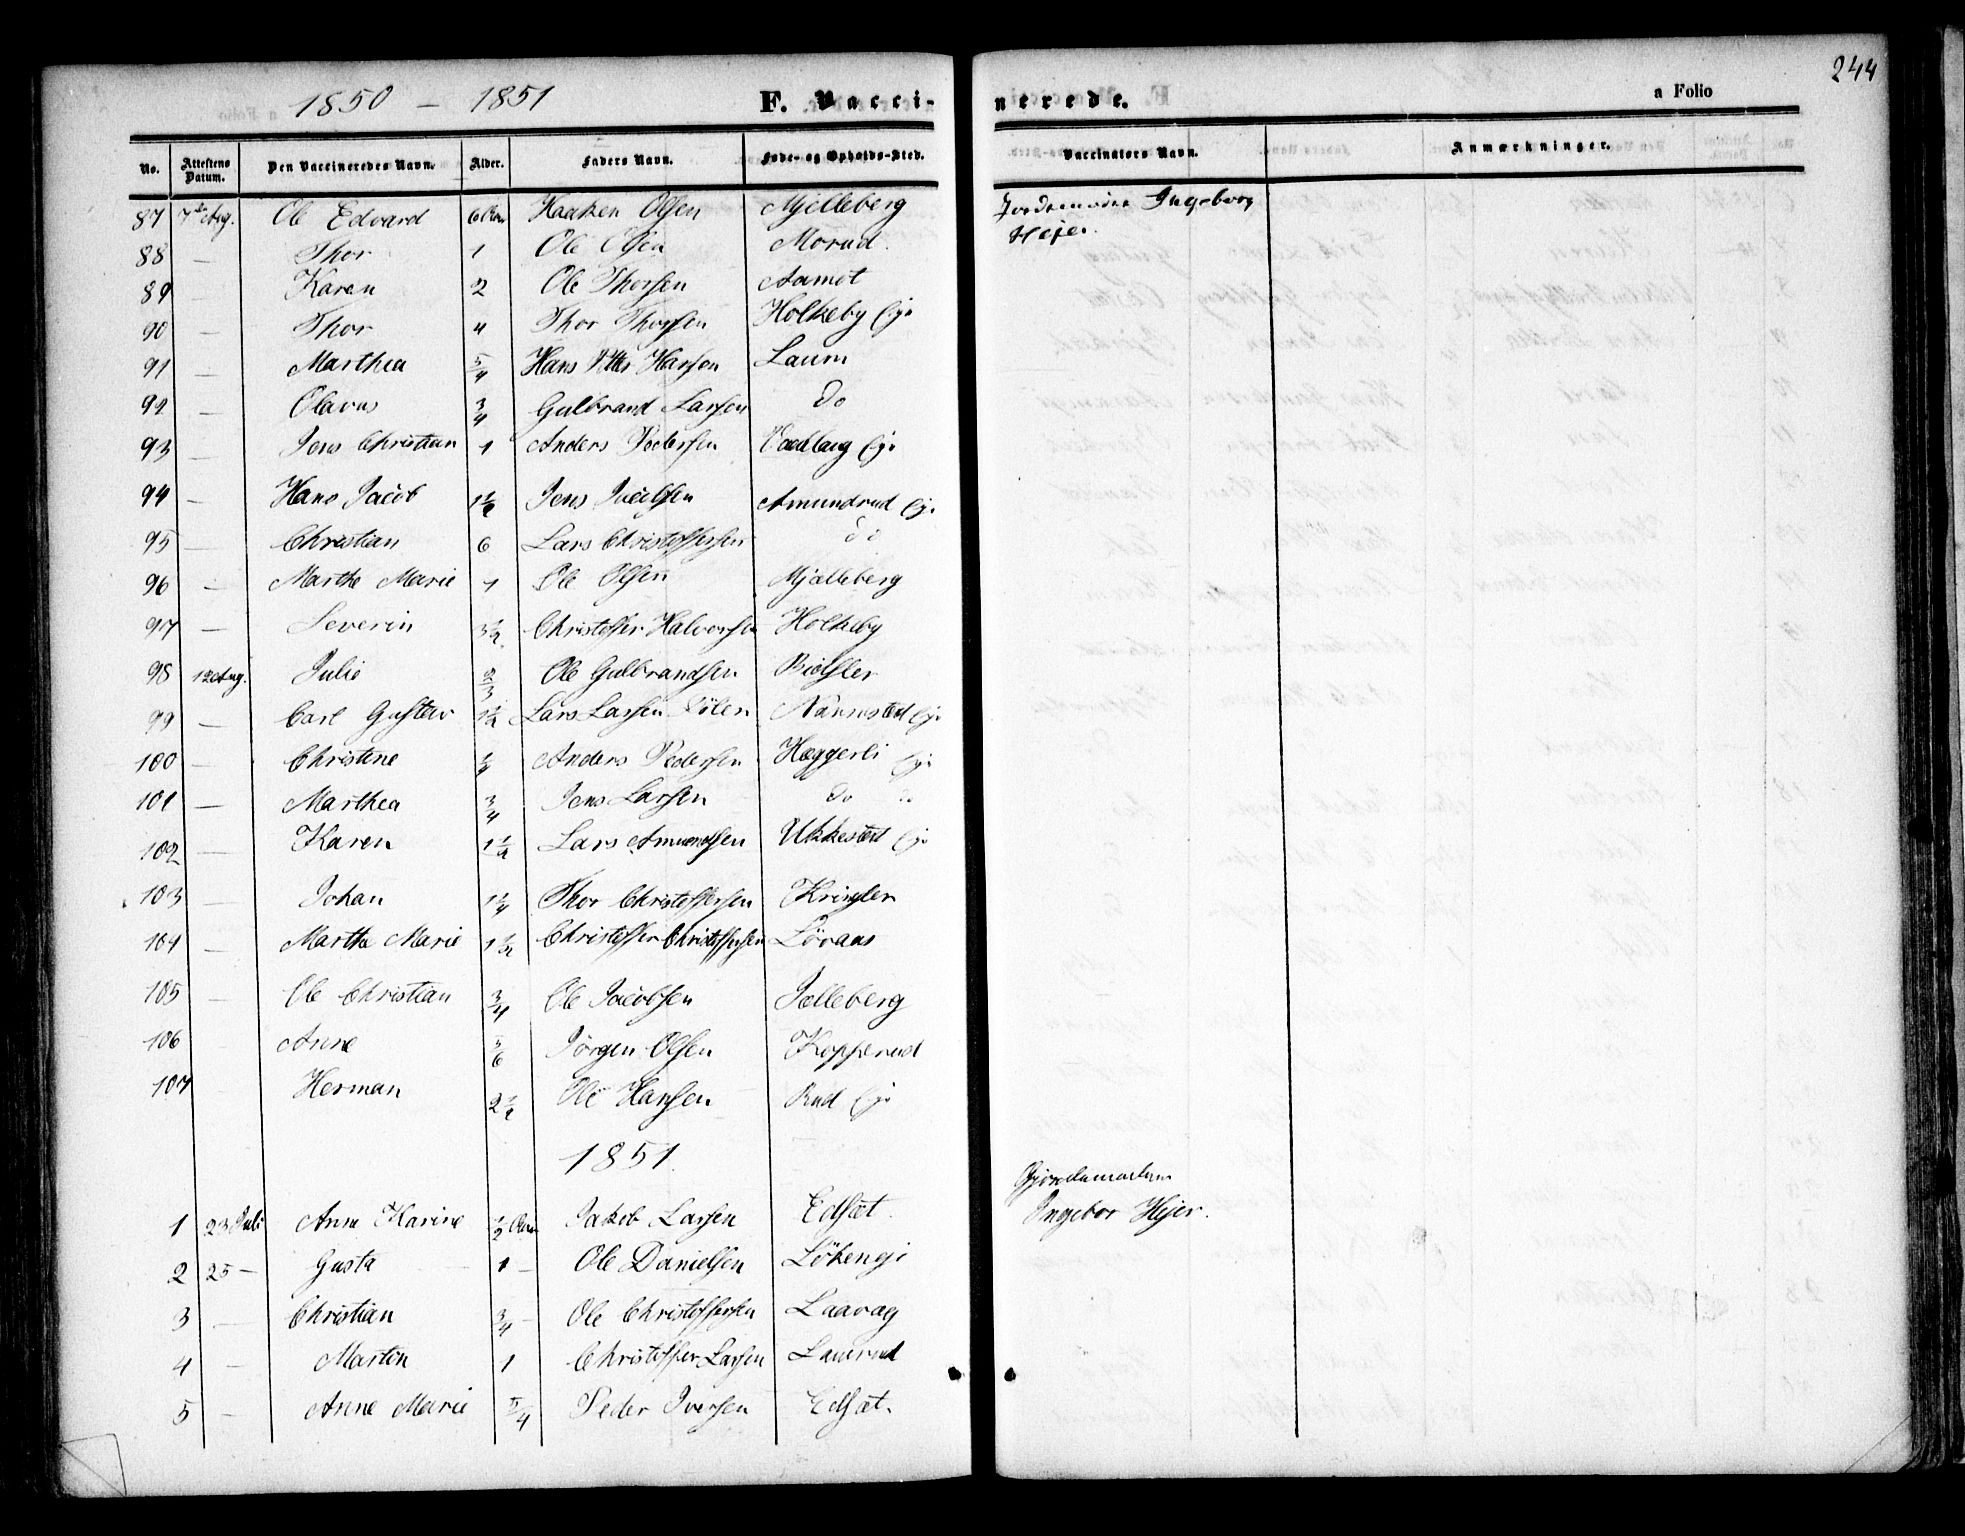 244
1850 – 1851 F. Vacci-nerede. a Folio
No. Attestens Datum. Den Vaccineredes Navn. Alder. Faders Navn. Føde- og Opholds-Sted. Vaccinators Navn. Anmærkninger.
87 7de Aug. Ole Edvard 6 Haaken Olsen Mjelleberg Jordemoder Ingeborg
Hejer.
88 — Thor 1 Ole Olsen Morud.
89 — Karen 2 Ole Thorsen Aamot
90 — Thor 4 Thor Thorsen Holkeby Eje
91 — Marthea 5/4 Hans Petter Hansen Laum
92 — Olavus 3/4 Gulbrand Larsen Do
93 — Jens Christian 1 Anders Pedersen Eje
94 — Hans Jacob 1½ Jens Jacobsen Amundrud Eje
95 — Christian 6 Lars Christoffersen do
96 — Marthe Marie 1 Ole Olsen Mjælleberg
97 — Severin 3½ Christoffer Halvorsen Holkeby
98 12 Aug. Julie 2/3 Ole Gulbrandsen
99 — Carl Gustav 1½ Lars Larsen Nannestad Eje
100 — Christine ¼ Anders Pedersen Hæggerli Eje
101 — Marthea 3/4 Jens Larsen do do
102 — Karen 1½ Lars Amundsen Ukkestad Eje
103 — Johan 1¼ Thor Christoffersen Kringler
104 — Marthe Marie 1½ Christoffer Christoffersen Løvaas
105 — Ole Christian 3/4 Ole Jacobsen Jælleberg
106 Anne 5/6 Jörgen Olsen Kopperud
107 Herman 2½ Ole Hansen Rud Eje
1851.
Gjordemoderen
1 23 Juli Anne Karine ½ Jakob Larsen Edsæt. Ingebor Hejer.
2 25 — Gusta 1 – Ole Danielsen Lökengi
3 — Christian 3/4 – Ole Christoffersen Laavag
4 — Martin 1 Christoffer Larsen Laurud
5 — Anne Marie 5/4 Peder Iversen Edsæt.